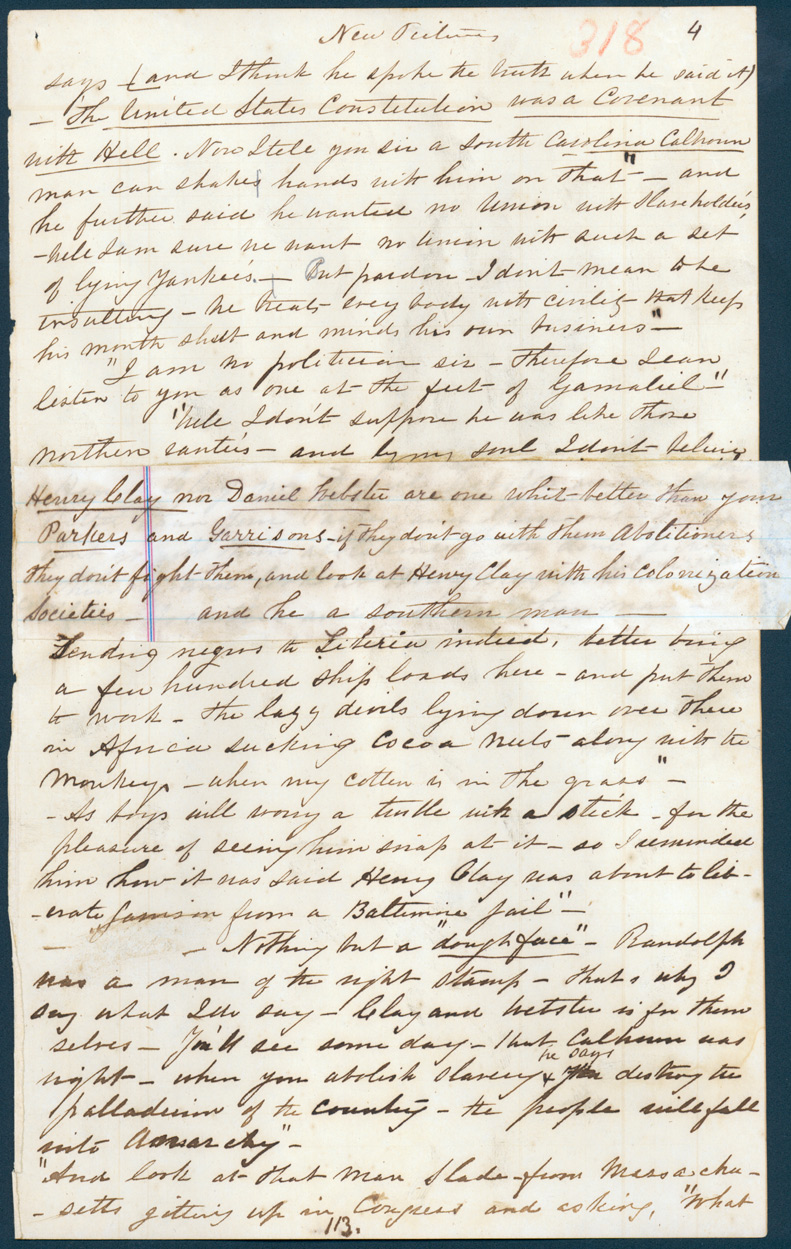 New Pictures 318 4
says (and I think he spoke the truth when he said it)
— The United States Constitution was a Covenant
with Hell. Now I tell you sir a South Carolina Calhoun
man can shake hands with him on that" — and
he further said he wanted no Union with slaveholders,
— well I am sure we want no Union with such a set
of lying Yankees. — But pardon — I don't mean to be
insulting — we treats every body with civility that keeps
his mouth shut and minds his own business" —
"I am no politician sir — therefore I can
listen to you as one at the feet of Gamaliel —"
"Well I don't suppose he was like those
northern saints — and by my soul I don't believe
Henry Clay nor Daniel Webster are one whit better than your
Parkers and Garrisons — if they don't go with them Abolitioners
they don't fight them, and look at Henry Clay with his Colonization
Societies — and he a southern man —
Sending negros to Liberia indeed, better bring
a few hundred ship loads here — and put them
to work — the lazy devils lying down over there
in Africa sucking Cocoa Nuts along with the
Monkeys — when my cotten is in the grass" —
— As boys will worry a turtle with a stick — for the
pleasure of seeing him snap at it — so I reminded
him how it was said Henry Clay was about to lib-
-erate Garrison from a Baltimore jail" —
— — Nothing but a "dough face" — Randolph
was a man of the right stamp — that's why I
say what I do say — Clay and Webster is for them
selves — You'll see some day — that Calhoun was
right — when you abolish slavery he says
you destroy the
palladium of the country — the people will fall
into Anarchy" —
"And look at that man Slade — from Massachu-
-setts gitting up in Congress and asking, "What
113.